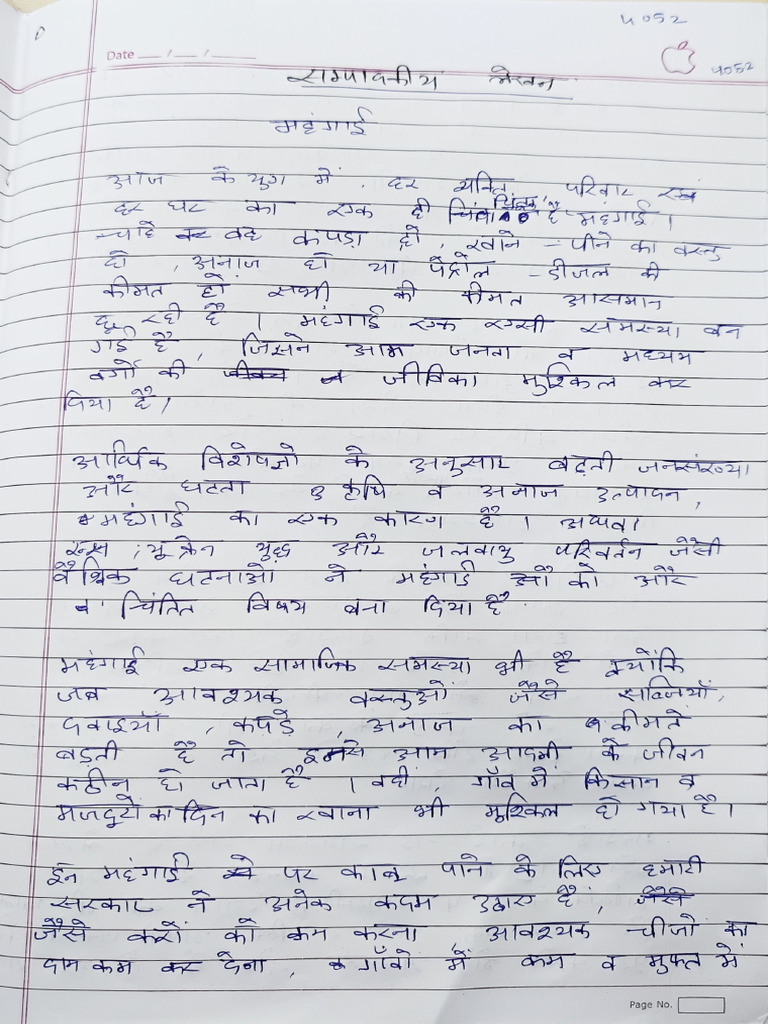 4052
D
Date __/__/__
4052
सम्पादकीय लेखन
महंगाई
आज के युग में, हर व्यक्ति, परिवार एवं
हर घर का एक ही चिंता है महंगाई।
चाहे वह कपड़ा हो, खाने-पीने का वस्तु
हो, अनाज हो या पेट्रोल-डीजल की
कीमत हो सभी की कीमत आसमान
छू रही है। महंगाई एक एसी समस्या बन
गई है, जिसने आम जनता व मध्यम
वर्गो की जीविका मुश्किल कर
दिया है।
आर्थिक विशेषज्ञो के अनुसार बढ़ती जनसंख्या
और घटता कृषि व अनाज उत्पादन,
महंगाई का एक कारण है। अथवा
रूस, यूक्रेन युद्ध और जलवायु परिवर्तन जैसी
वैश्विक घटनाओं ने महंगाई को और
चिंतित विषय बना दिया है
महंगाई एक सामाजिक समस्या भी है क्योंकि
जब आवश्यक वस्तुओं जैसे सब्जियाँ,
दवाइयाँ, कपड़े, अनाज का कीमते
बड़ती है तो इनसे आम आदमी के जीवन
कठीन हो जाता है। वही, गाँव में किसान व
मजदूरो का दिन का खाना भी मुश्किल हो गया है।
इन महंगाई पर काबू पाने के लिए हमारी
सरकार ने अनेक कदम उठाए है,
जैसे करों को कम करना, आवश्यक चीजो का
दाम कम कर देना, गाँवो में कम व मुफ्त में
Page No.